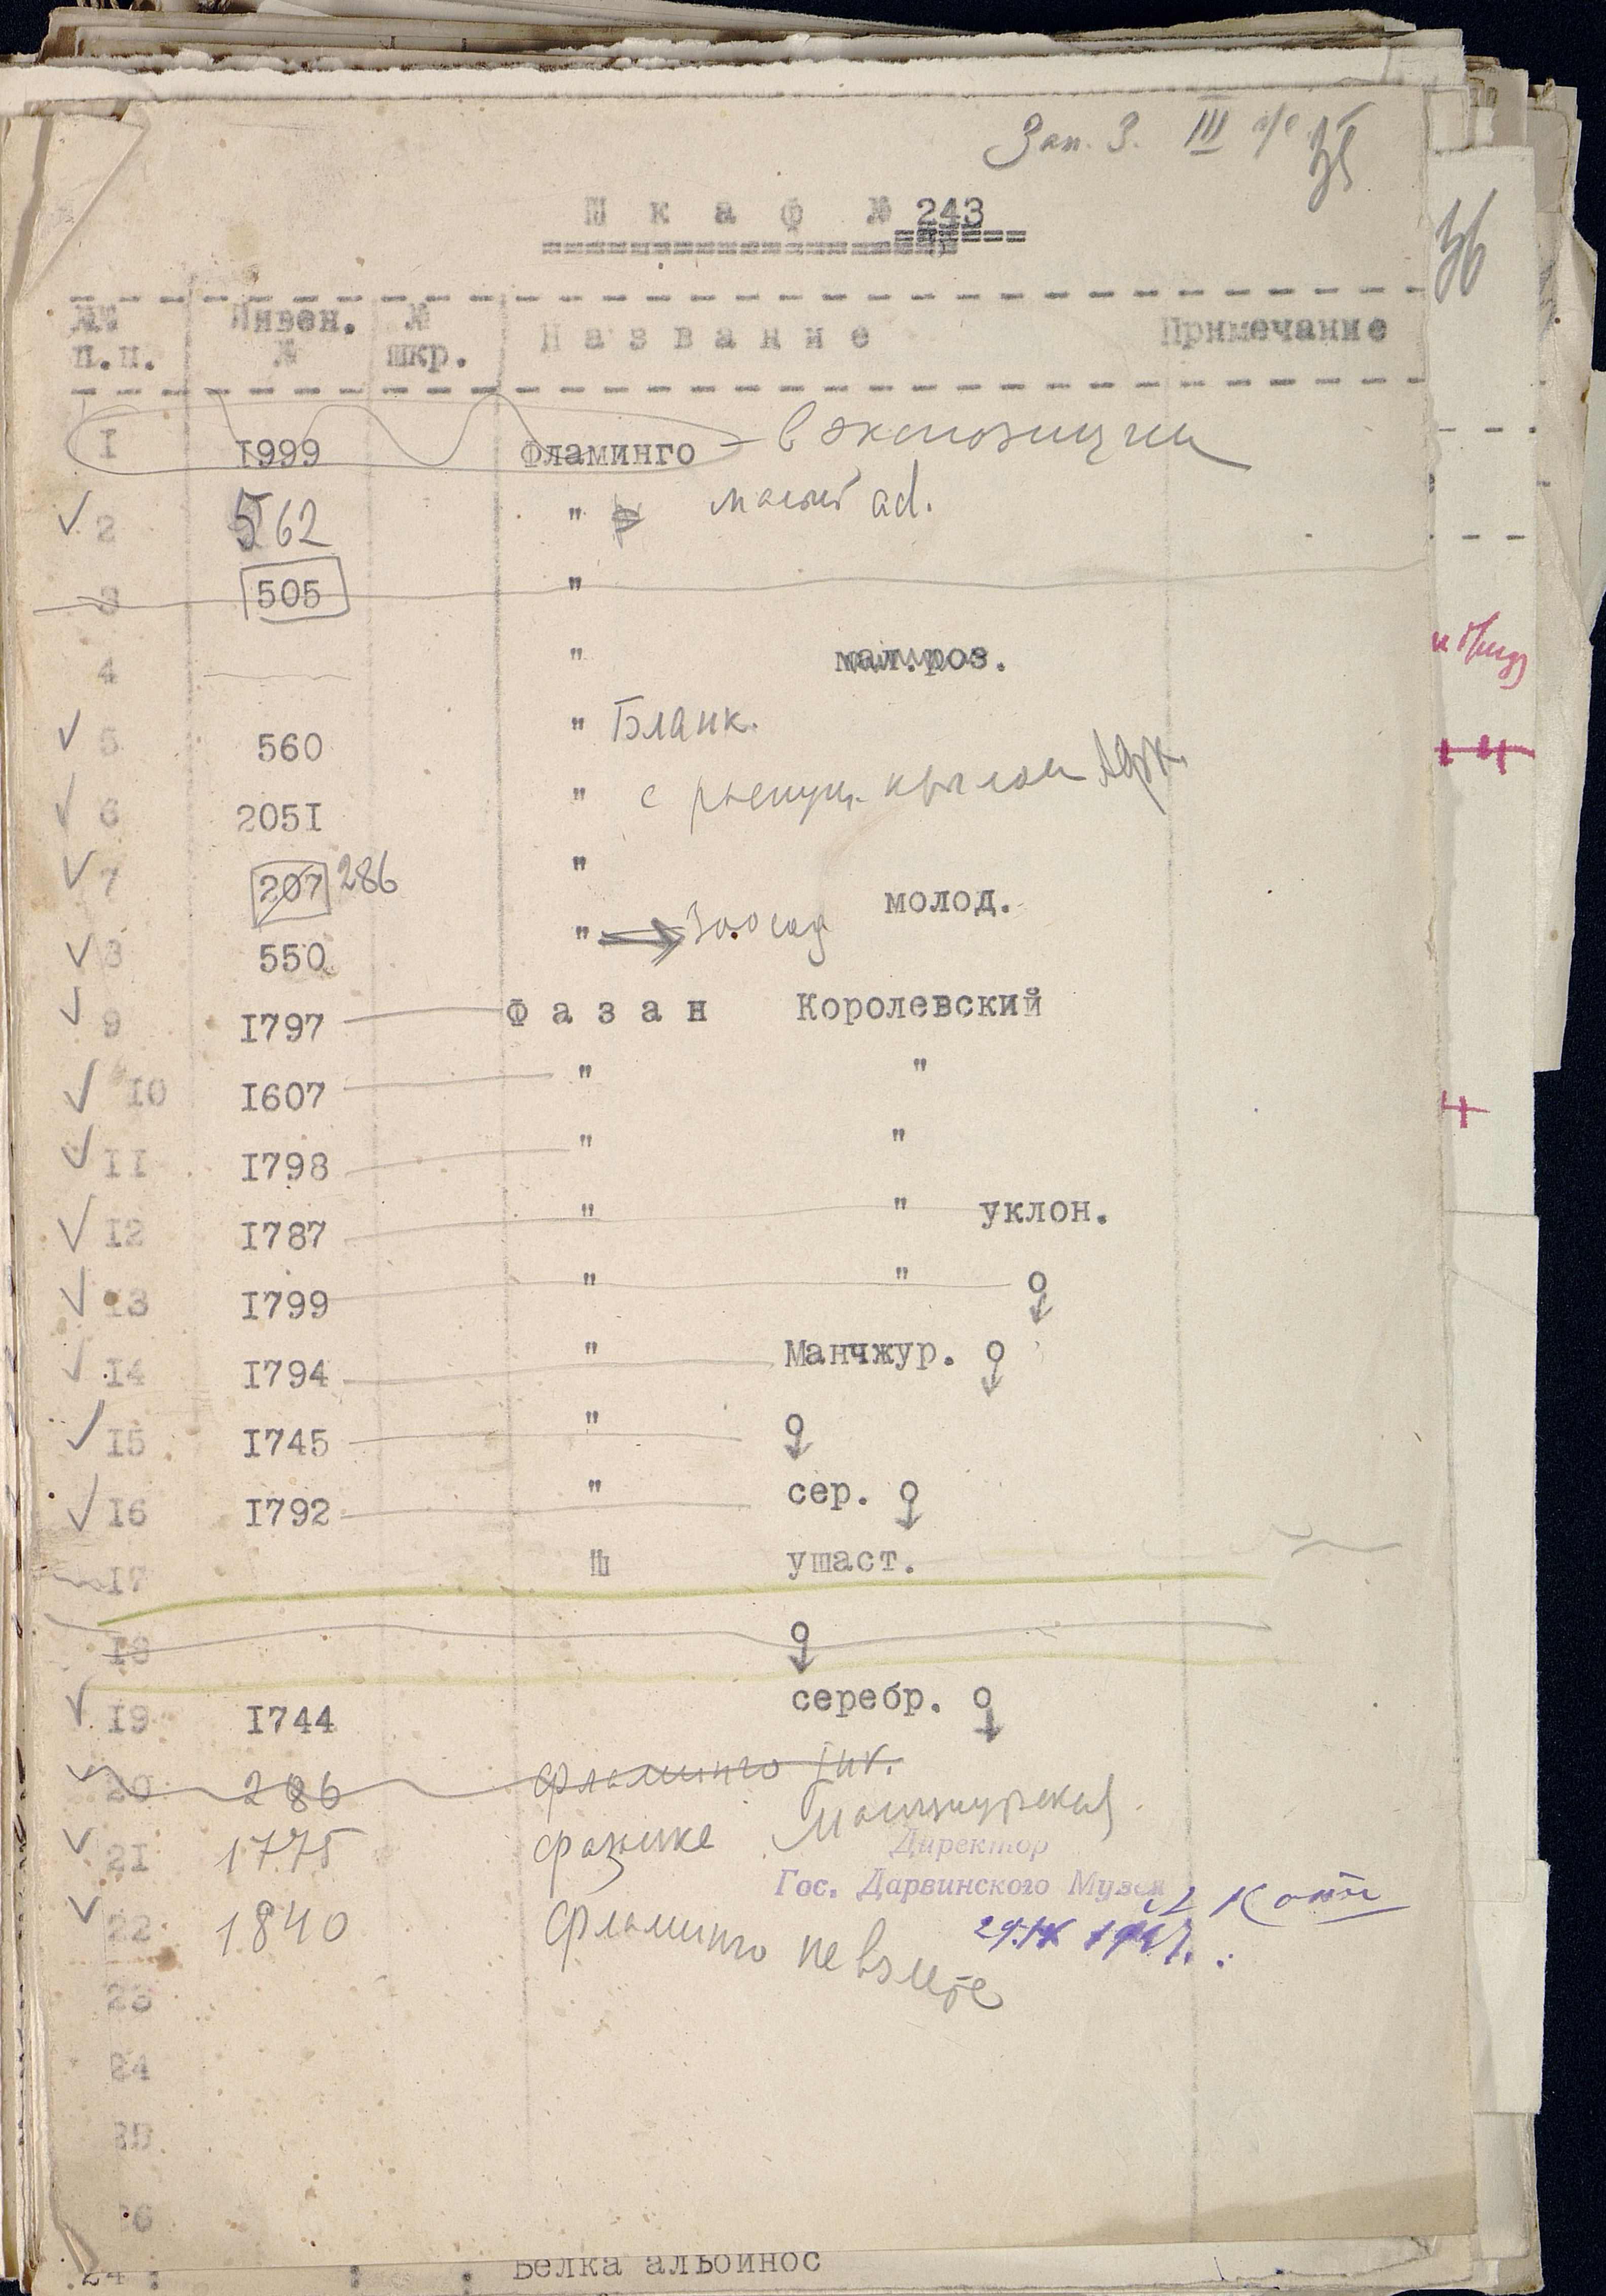 Зап. 3. III
35
36
Шкаф № 243
№№ п.п. Инвен. № № шкр. Название Примечание
1 1999 Фламинго - в экспозиции
✓ 2 562 " малый ad.
3 505 "
4 " мал.роз.
✓ 5 560 " Бланк.
✓ 6 2051 " с
✓ 7 207 286 "
молод.
✓ 8 550 " → Зоосад
✓ 9 1797 Фазан Королевский
✓ 10 1607 " "
✓ 11 1798 " "
✓ 12 1787 " " уклон.
✓ 13 1799 " " ♀
✓ 14 1794 " Манчжур. ♀
✓ 15 1745 " ♀
✓ 16 1792 " сер. ♀
17 " ушаст.
18 ♀
✓ 19 1744 серебр. ♀
✓ 20 286 Фламинго juv.
✓ 21 1775 Манчжурский
Директор
Гос. Дарвинского Музея
✓ 22 1840 Фламинго
23
24
25
26
24 : : : Белка альбинос